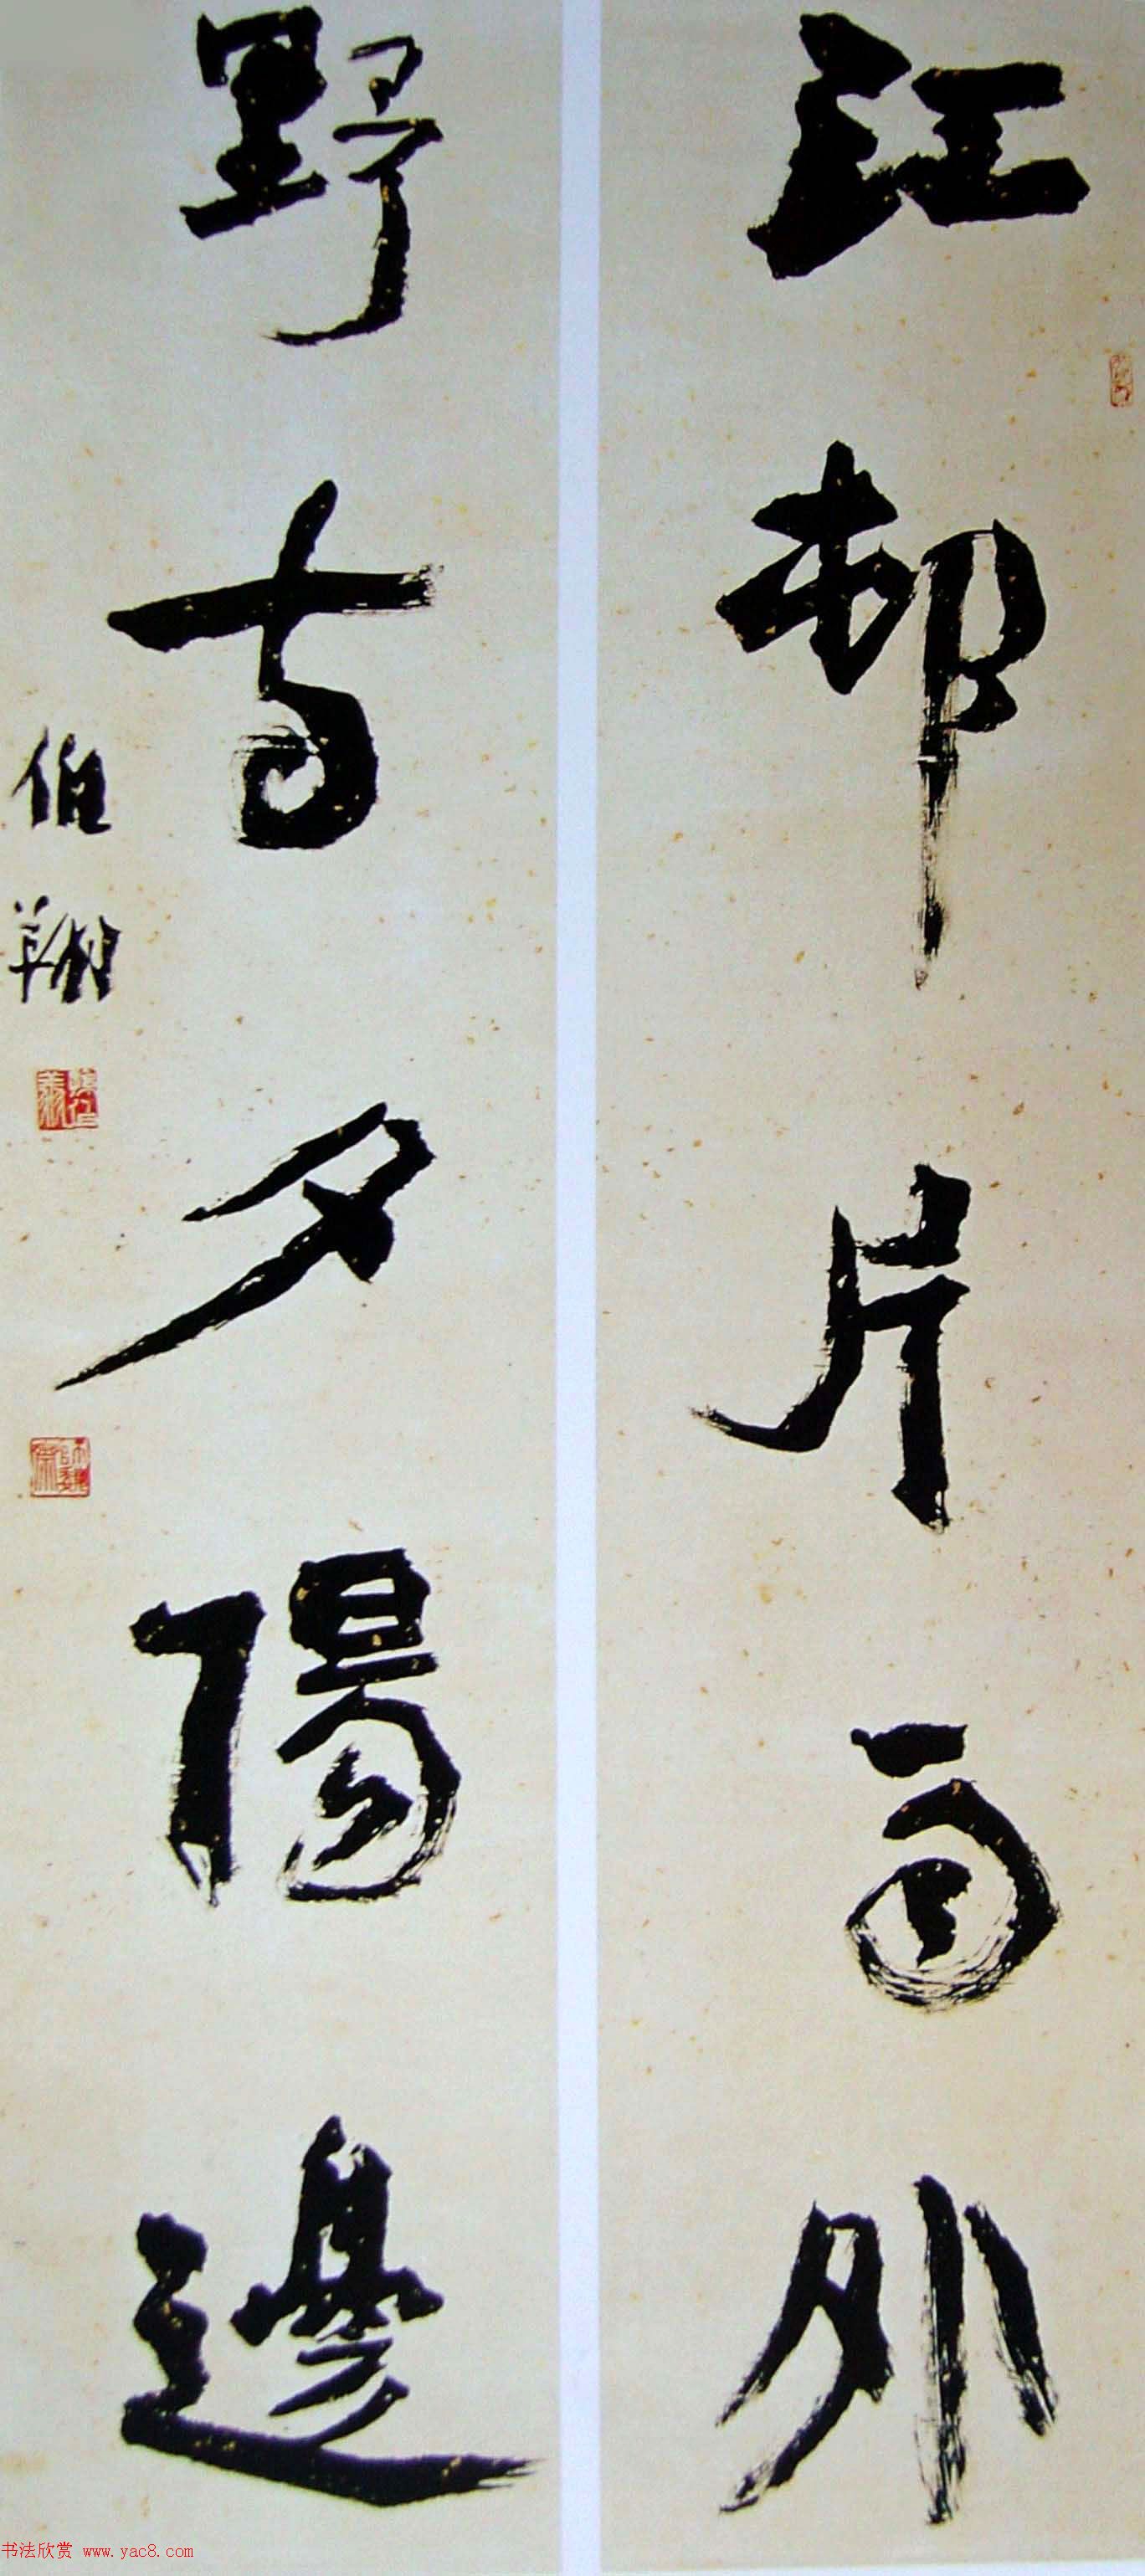 江邨片雨外
野寺夕陽邊
伯翔
书法欣赏 www.yac8.com